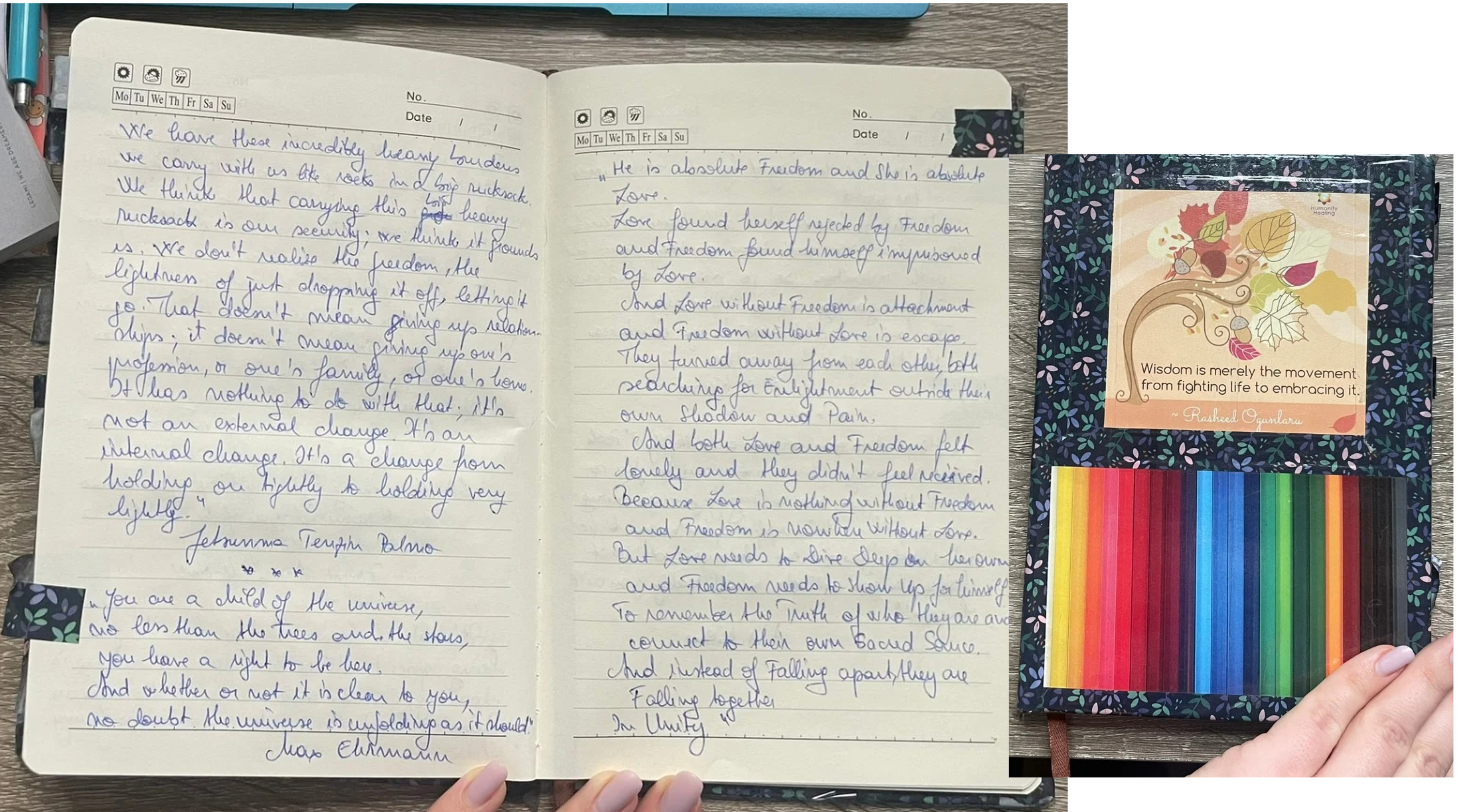 No.
Date / /
Mo Tu We Th Fr Sa Su
We have these incredibly heavy burdens
we carry with us like rocks in a big rucksack.
We think that carrying this big heavy
rucksack is our security; we think it grounds
us. We don't realize the freedom, the
lightness of just dropping it off, letting it
go. That doesn't mean giving up relation-
ships; it doesn't mean giving up one's
profession, or one's family, or one's home.
It has nothing to do with that; it's
not an external change. It's an
internal change. It's a change from
holding on tightly to holding very
lightly."
Jetsunma Tenzin Palmo
* * *
„You are a child of the universe,
no less than the trees and the stars,
you have a right to be here.
And whether or not it is clear to you,
no doubt the universe is unfolding as it should"
Max Ehrmann
No.
Date / /
Mo Tu We Th Fr Sa Su
„He is absolute Freedom and She is absolute
Love.
Love found herself rejected by Freedom
and Freedom found himself imprisoned
by Love.
And Love without Freedom is attachment
and Freedom without Love is escape.
They turned away from each other, both
searching for Enlightment outside their
own Shadow and Pain.
And both Love and Freedom felt
lonely and they didn't feel received.
Because Love is nothing without Freedom
and Freedom is nowhen without Love.
But Love needs to Dive Deep on her own
and Freedom needs to show up for himself
To remember the Truth of who they are and
connect to their own Sacred Source.
And instead of Falling apart, they are
Falling together
In Unity"
Humanity
Healing
Wisdom is merely the movement
from fighting life to embracing it.
~ Rasheed Ogunlaru
LEGAMI WE ARE DREAMERS